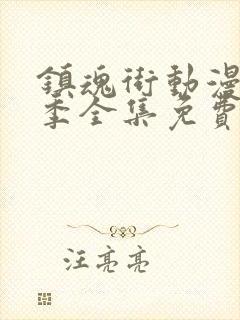 鎮魂街動漫
季全集免費
汪亮亮